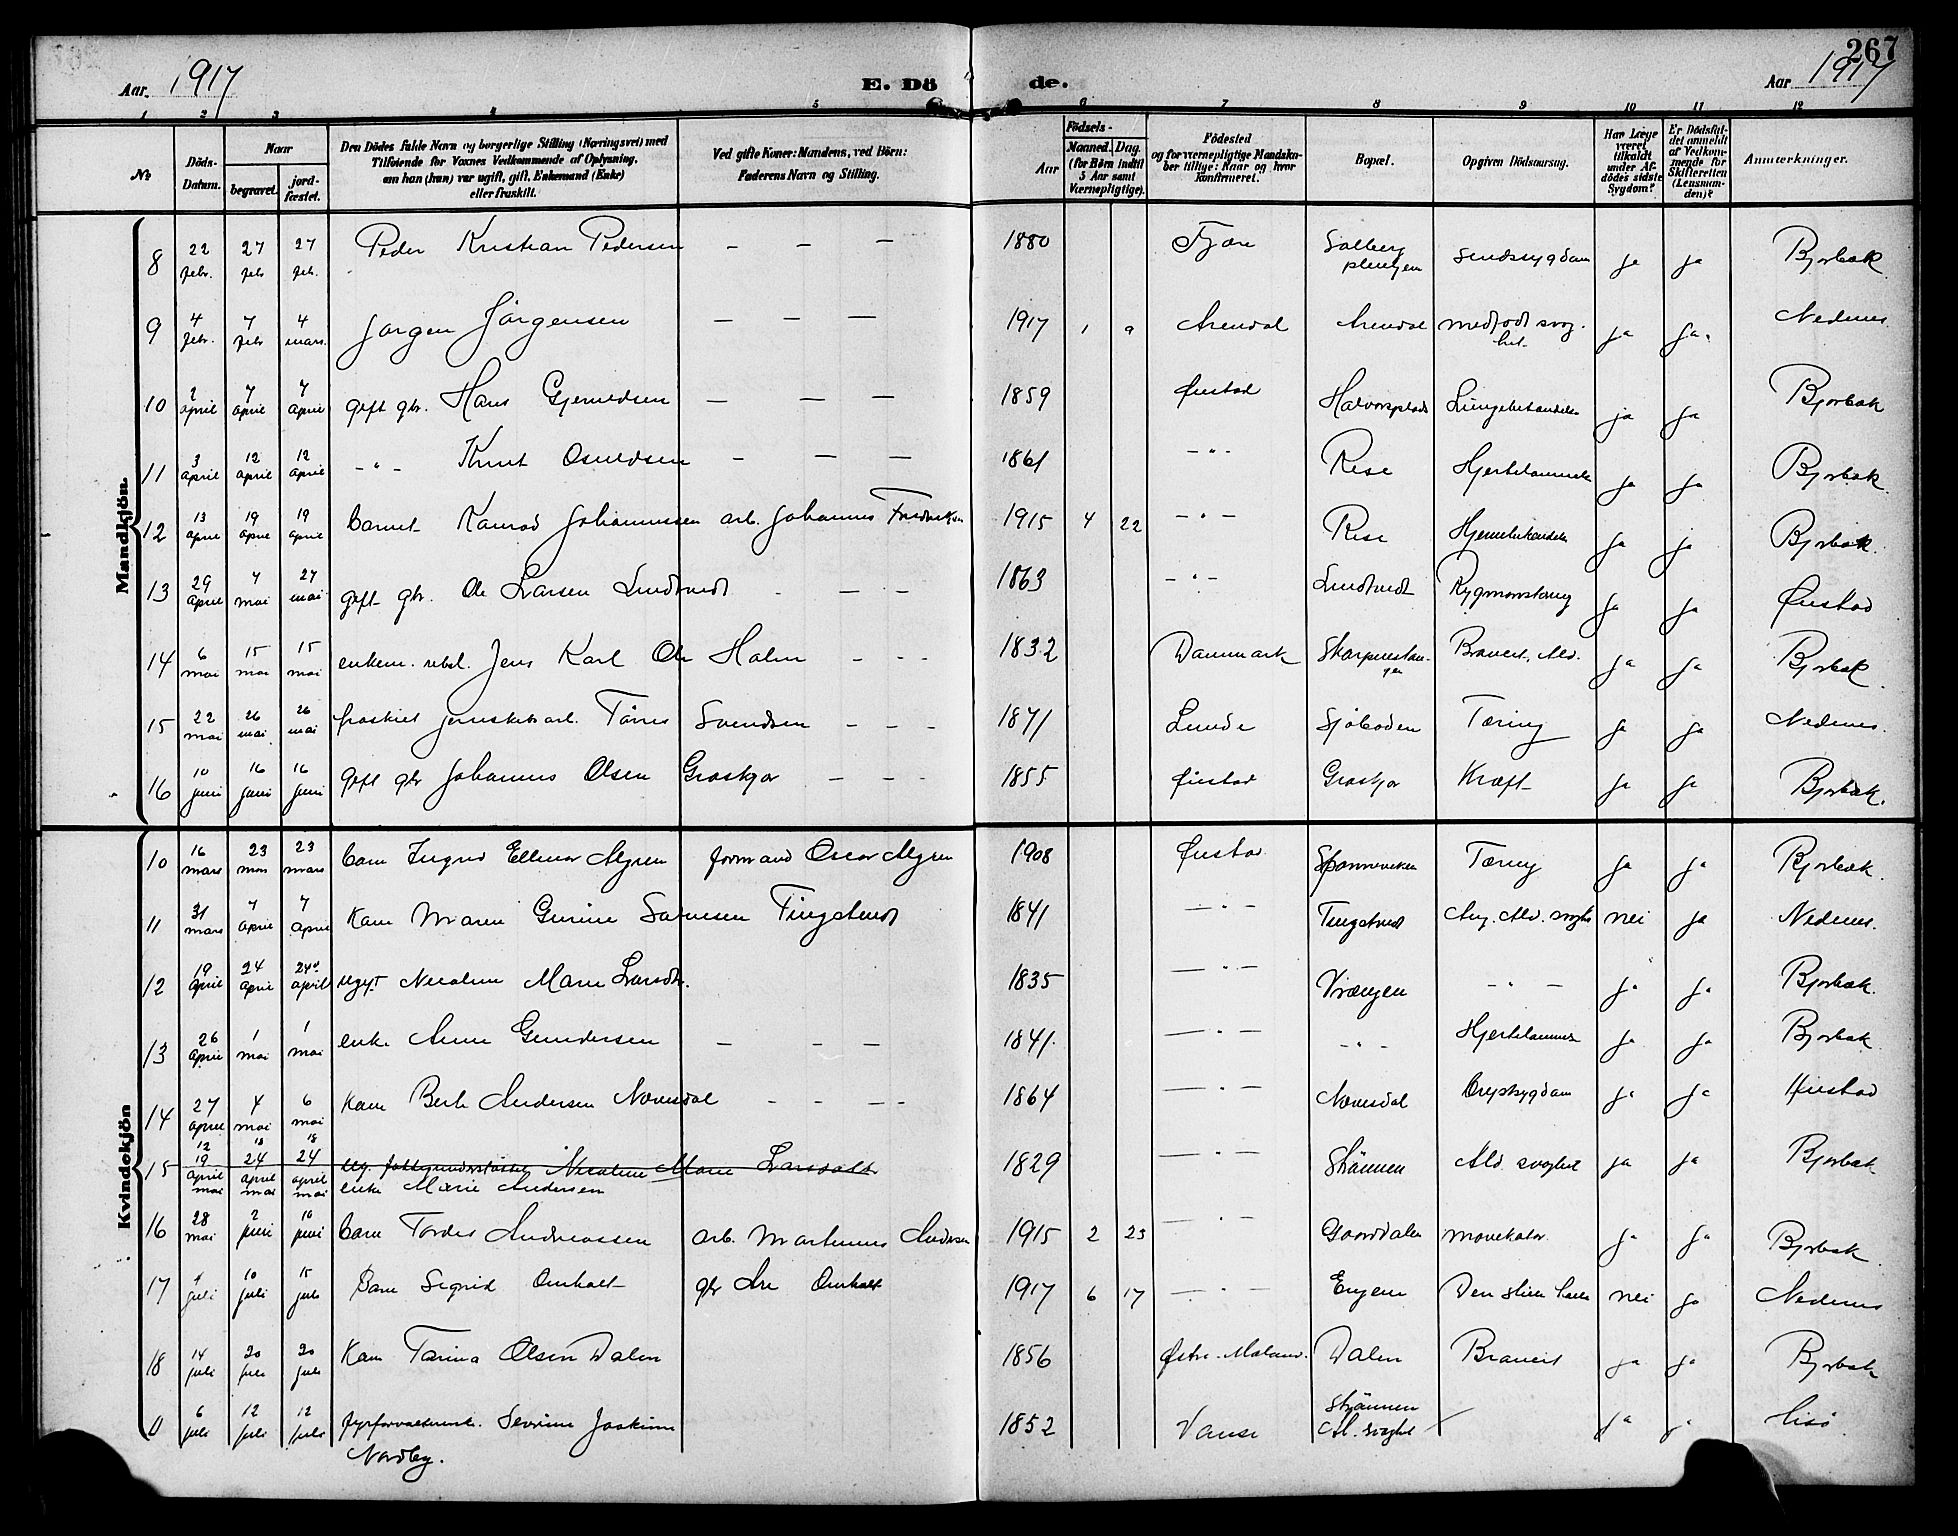 267
Aar 1917 E. Dö de. Aar 1917
1 2 3 4 5 6 7 8 9 10 11 12
№ Döds-Datum. Naar begravet. jordfæstet. Den Dödes fulde Navn og borgerlige Stilling (Næringsvei) med Tilföiende for Voxnes Vedkommende af Oplysning, om han (hun) var ugift, gift, Enkemand (Enke) eller fraskilt. Ved gifte Koner: Mandens, ved Börn: Faderens Navn og Stilling. Födsels- Aar Maaned. Dag. (for Börn indtil 5 Aar samt Værnepligtige). Födested og for værnepligtige Mandskaber tillige: Naar og hvor konfirmeret. Bopæl. Opgiven Dödsaarsag. Har Læge været tilkaldt under Afdödes sidste Sygdom? Er Dödsfaldet anmeldt af Vedkommende for Skifteretten (Lensmanden)? Anmærkninger.
Mandkjön.
8 22 febr. 27 feb 27 feb. Peder Kristian Pedersen — — — 1880 Fjære Solberg pleiehjem sindssygdom ja ja Bjorbæk
9 4 febr. 7 febr 4 mars. Jørgen Jørgensen — — — 1917 1 9 Arendal Arendal medfødt svaghet. ja ja. Nedenes.
10 2 april 7 april 7 april gift gbr. Hans Gjemeldsen — — — 1859 Øiestad Halvorsplads Lungebetændelse ja ja Bjorbæk
11 3 april 12 april 12 april - " - Knut Osuldsen — — — 1861 - " - Rise Hjertelammelse ja ja Bjorbæk.
12 13 april 19 april 19 april barnet Konrad Johannessen arb. Johannes Fredriksen 1915 4 22 - " - Rise Hjernebetændelse ja ja Bjorbæk.
13 29 april 4 mai 27 mai gift gbr. Ole Larsen Lindtveit - — - 1863 - " - Lindtveit Rygmarvstæring ja ja Øiestad
14 6 mai 15 mai 15 mai enkem. Jens Karl Ole Holm — - - 1832 Danmark Skarpnestangen Bronkit, Ald. ja ja Bjorbæk.
15 22 mai 26 mai 26 mai fraskilt Tarres Svendsen — - - 1871 Lunde Sjøboden Tæring ja ja Nedenes.
16 10 juni 16 juni 16 juni Gift gbr Johannes Olsen Graskjær — — - 1855 Øiestad Graskjær Kræft ja ja Bjorbæk.
Kvindekjön
10 16 mars 23 mars 23 mars barn Ingrid Ellinor Algren formand Oscar Algren 1908 Øiestad Tæring ja ja Bjorbæk.
11 31 mars 7 april 7 april Kone Maren Gurine Tingstveit 1841 — " — Tingstveit Ald. svaghet nei ja Nedenes.
12 19 april 24 april 24 april ugift Nicoline Marie Larsdtr. 1835 — " — Vrængen - " — ja ja Bjorbæk.
13 26 april 1 mai 1 mai enke Anne Gundersen — — — 1841. — " — - " - Hjertelammelse ja ja Bjorbæk
14 27 april 4 mai 6 mai Kone Berte Andersen Nævesdal - - - - 1864 — " — Nævesdal Brystsygdom ja ja Øiestad
15 12 19 april mai 18 24 april mai 18 24 april mai ug. fattigunderstøttet Nicoline Marie Larsdatter
enke Marie Andersen 1829 — " — Strømmen Ald. svaghet ja ja Bjorbæk
16 28 mai 2 juni 10 juni barn Tordis Andreassen arb. Martinius Andersen 1915 2 23 — " — Gaarddalen mavekatar. ja ja Bjorbæk
17 4 juli 10 juli 15 juli Barn Sigrid Omholt gbr Are Omholt 1917 6 17 — " — Engene nei ja Nedenes
18 14 juli 20 juli 20 juli Kone Tarina Olsen Dalen 1856 Østre-Moland. Dalen Bronkit ja ja Bjorbæk
0 6 juli 12 juli 12 juli fyrforvalterenke. Severine Joakime Nordby. 1852 Vanse Strømmen Al. svaghet ja Hisø